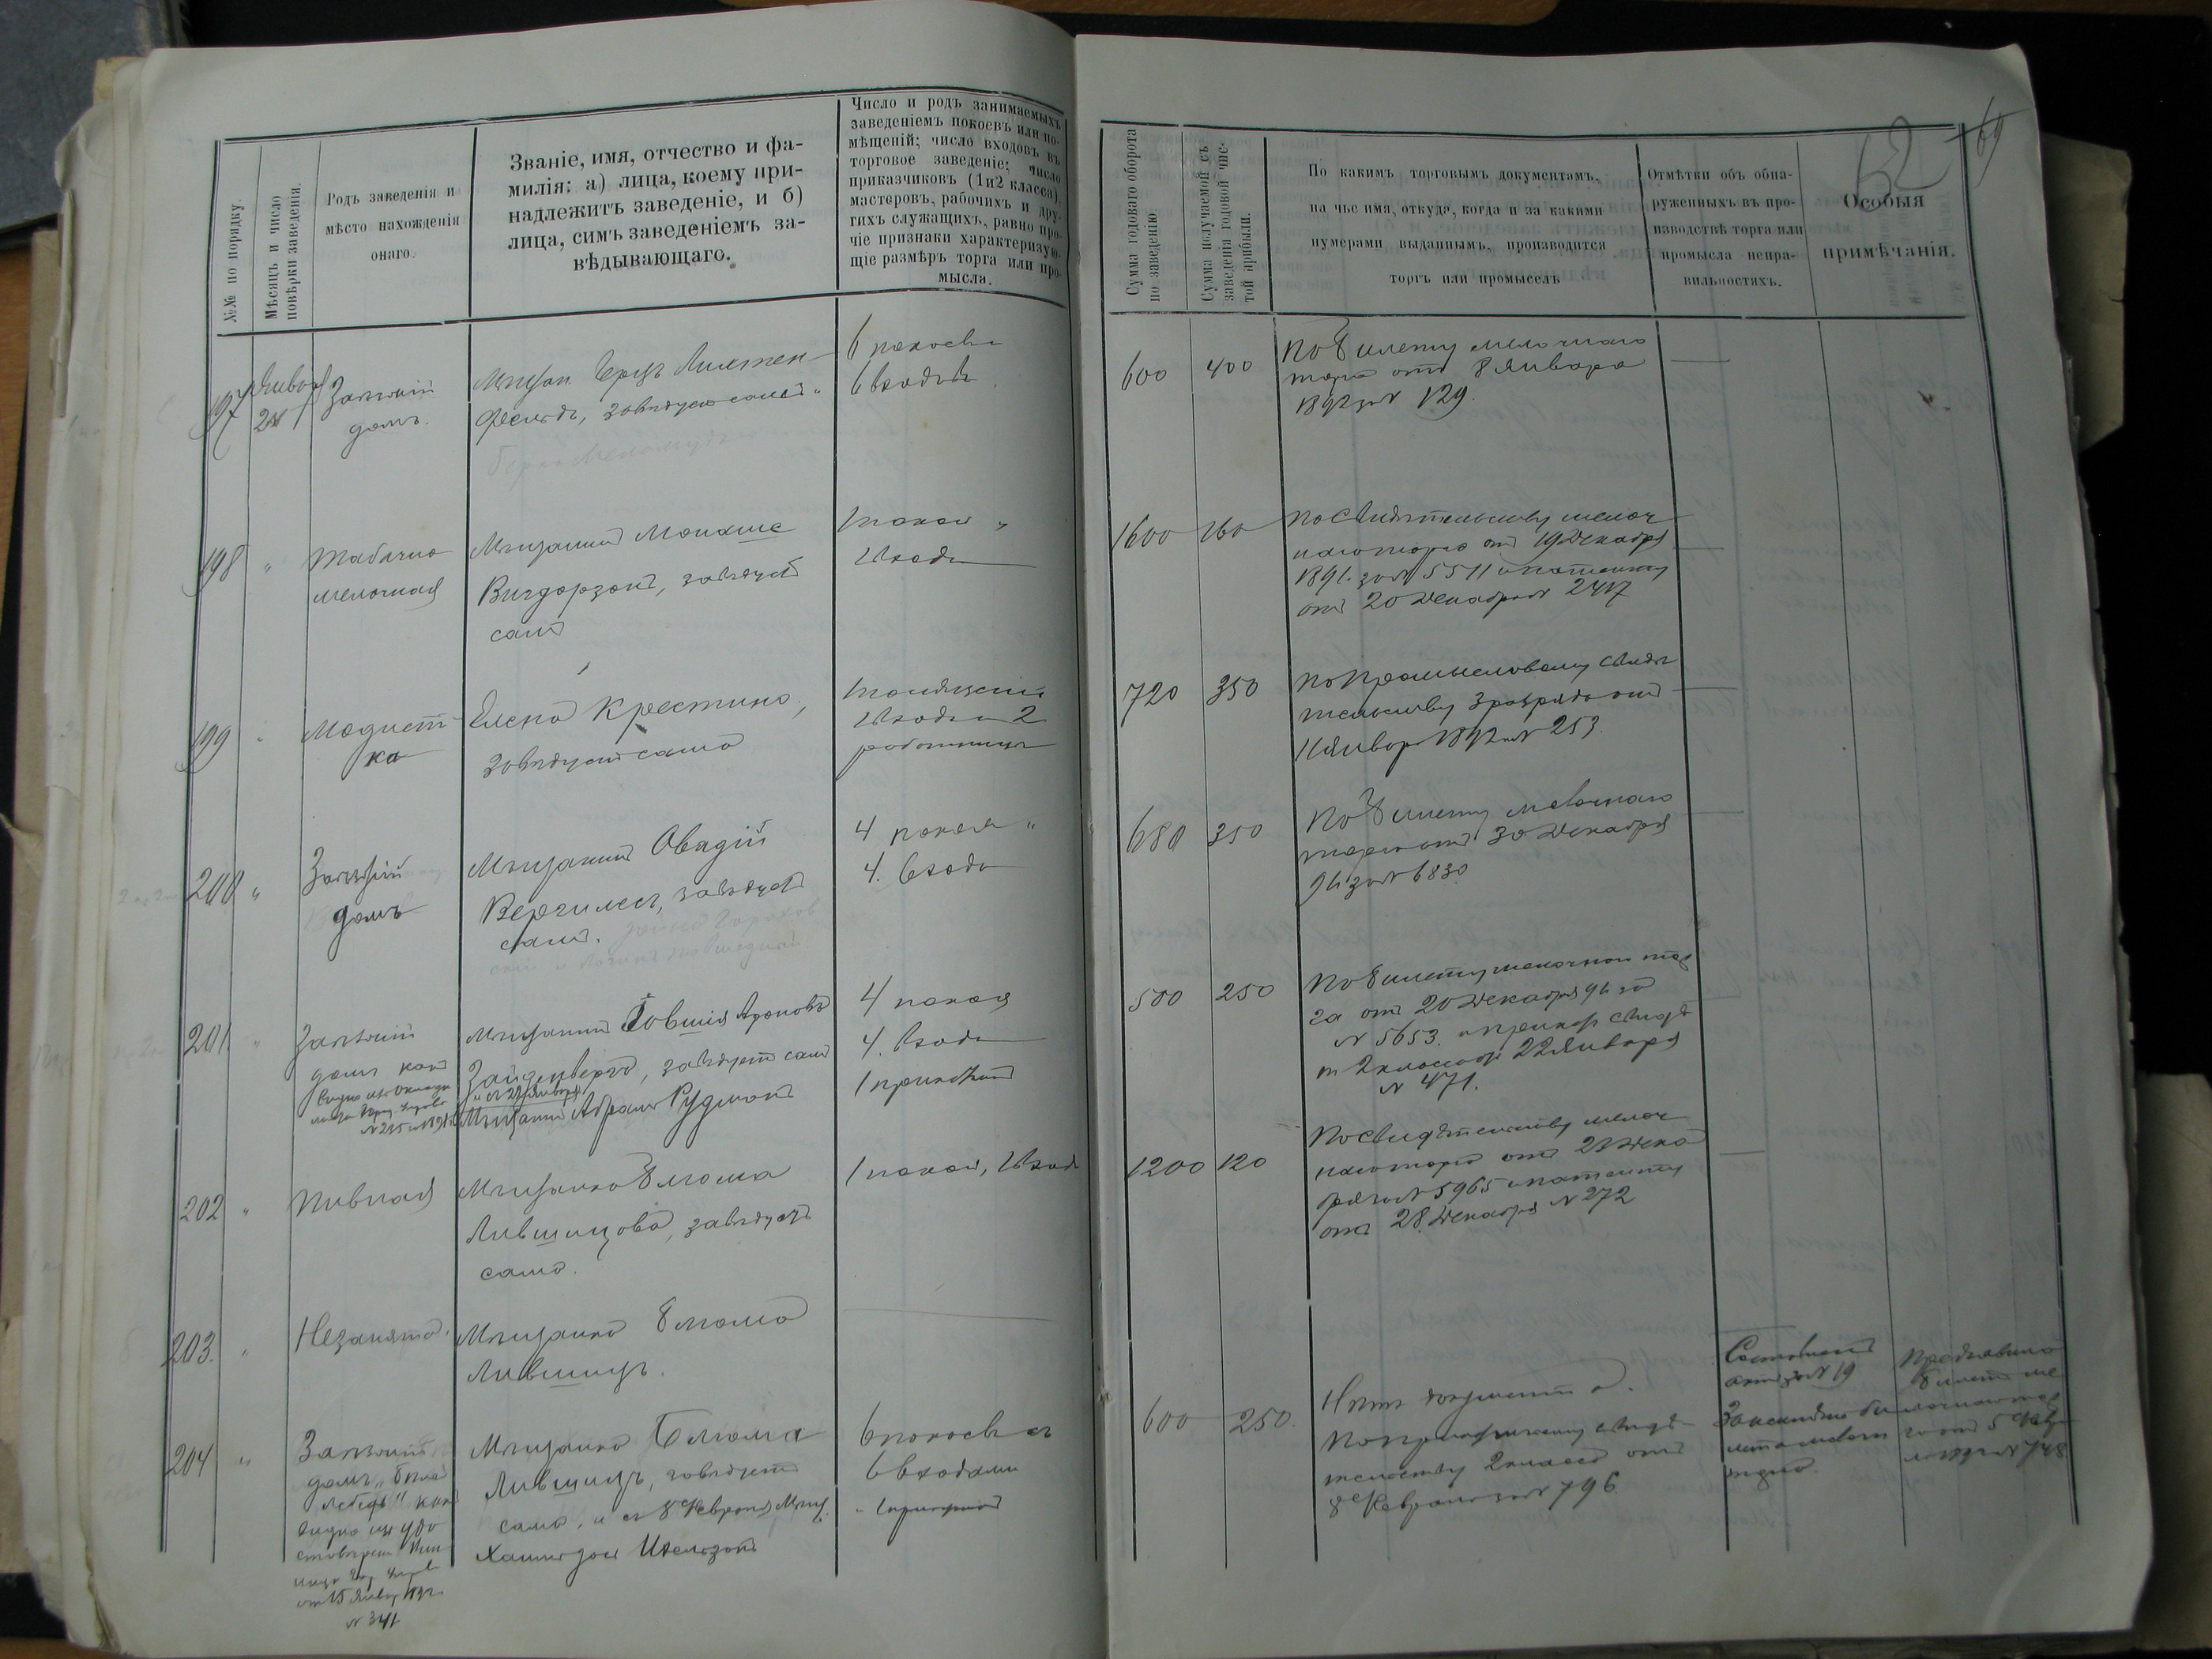 №№ по порядку.
Мѣсяцъ и число
повѣрки заведенія.
Родъ заведенія и
мѣсто нахожденія
онаго.
Званіе, имя, отчество и фа-
милія: а) лица, коему при-
надлежитъ заведеніе, и б)
лица, симъ заведеніемъ за-
вѣдывающаго.
Число и родъ занимаемыхъ
заведеніемъ покоевъ или по-
мѣщеній; число входовъ въ
торговое заведеніе; число
приказчиковъ (1 и 2 класса),
мастеровъ, рабочихъ и дру-
гихъ служащихъ, равно про-
чіе признаки характеризую-
щіе размѣръ торга или про-
мысла.
Сумма годоваго оборота
по заведенію
Сумма получаемой съ
заведенія годовой чис-
той прибыли.
По какимъ торговымъ документамъ,
на чье имя, откуда, когда и за какими
нумерами выданнымъ, производится
торгъ или промыселъ
Отмѣтки объ обна-
руженныхъ въ про-
изводствѣ торга или
промысла непра-
вильностяхъ.
Особыя
примѣчанія.
52
69
197
Января
24
Заѣзжій
домъ.
Мѣщан. Герцъ Лихтен-
фельдъ, завѣдуетъ самъ
6 покоевъ
6 входовъ
600
400
По билету мелочнаго
торга отъ 8 Января
1892 за № 129.
198
"
Табачно
мелочная
Мѣщанинъ Монаше
Вигдорзонъ, завѣдуетъ
самъ
1 покой
1 входъ
1600
160
По свидѣтельству мелоч
наго торга отъ 19 Декабря
1891. за № 5511 и патенту
отъ 20 Декабря № 2417
199
"
Модист
ка
Елена Крестина,
завѣдуетъ сама
1 помѣщеніе
1 входъ и 2
работницы
720
350
По Промысловому свидѣ
тельству 3 разряда отъ
11 Января 1892 за № 253.
200
"
Заѣзжій
домъ
Мѣщанинъ Овадій
Вергилесъ, завѣдуетъ
самъ.
4 покоя "
4. входа
680
350
По билету мелочнаго
торга отъ 30 Декабря
91 за № 6830
201
"
Заѣзжій
домъ какъ
видно изъ Оклади
Мѣщанинъ Іовшія Ароновъ
Зайденбергъ, завѣдуетъ самъ
и съ 22 Января
Мѣщанинъ Абрамъ Рудманъ
4 покоя
4. входа
1 прикащикъ
500
250
По билету мелочнаго тор
га отъ 20 Декабря 91 за
№ 5653. и прикащ. свидѣт
2 класса отъ 22 Января
№ 471.
202
"
Пивная
Мѣщанка Блюма
Лившицова, завѣдуетъ
сама.
1 покой, 1 входъ
1200
120
По свидѣтельству мелоч
наго торга отъ 28 Дека
бря за № 5965 и патенту
отъ 28 Декабря № 272
203.
"
Незанято.
Мѣщанка Блюма
Лившицъ.
204
"
Заѣзжій
домъ „Бѣлый
лебедь" какъ
видно изъ удо
стовѣренія
отъ 15 Января 1892 г.
№ 341
Мѣщанка Блюма
Лившицъ, завѣдуетъ
сама, и съ 8 Февраля Мѣщ.
Ицельзонъ
6 покоевъ съ
6 входами
600
250.
Нѣтъ документа.
По прикащичьему свидѣ-
тельству 2 класса отъ
8 Февраля за № 796
Составленъ
актъ за № 19
Предъявила
билетъ ме
лочнаго тор
га отъ 5 Фев
1892 № 748